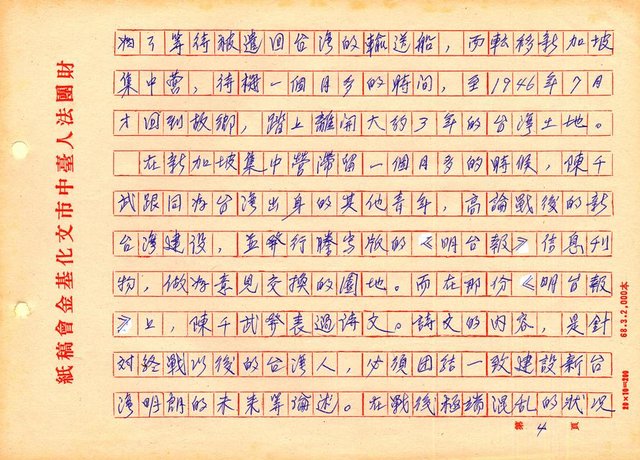 為了等待被遣回台湾的輸送船，而転移新加坡
集中营，待機一個月多的時间，至1946年7月
才回到故鄉，踏上離開大約3年的台湾土地。
在新加坡集中營滯留一個月多的時候，陳千
武跟同為台湾出身的其他青年，高論戰後的新
台湾建設，並發行謄寫版的《明台報》信息刊
物，做為意見交換的園地。而在那份《明台報
》上，陳千武發表過詩文。詩文的內容，是針
对終戰以後的台湾人，必須団結一致建設新台
湾明朗的未来等論述。在戰後極端混乱的狀况
財團法人臺中市文化基金會稿紙
68.3.2,000本
20×10=200
第4頁